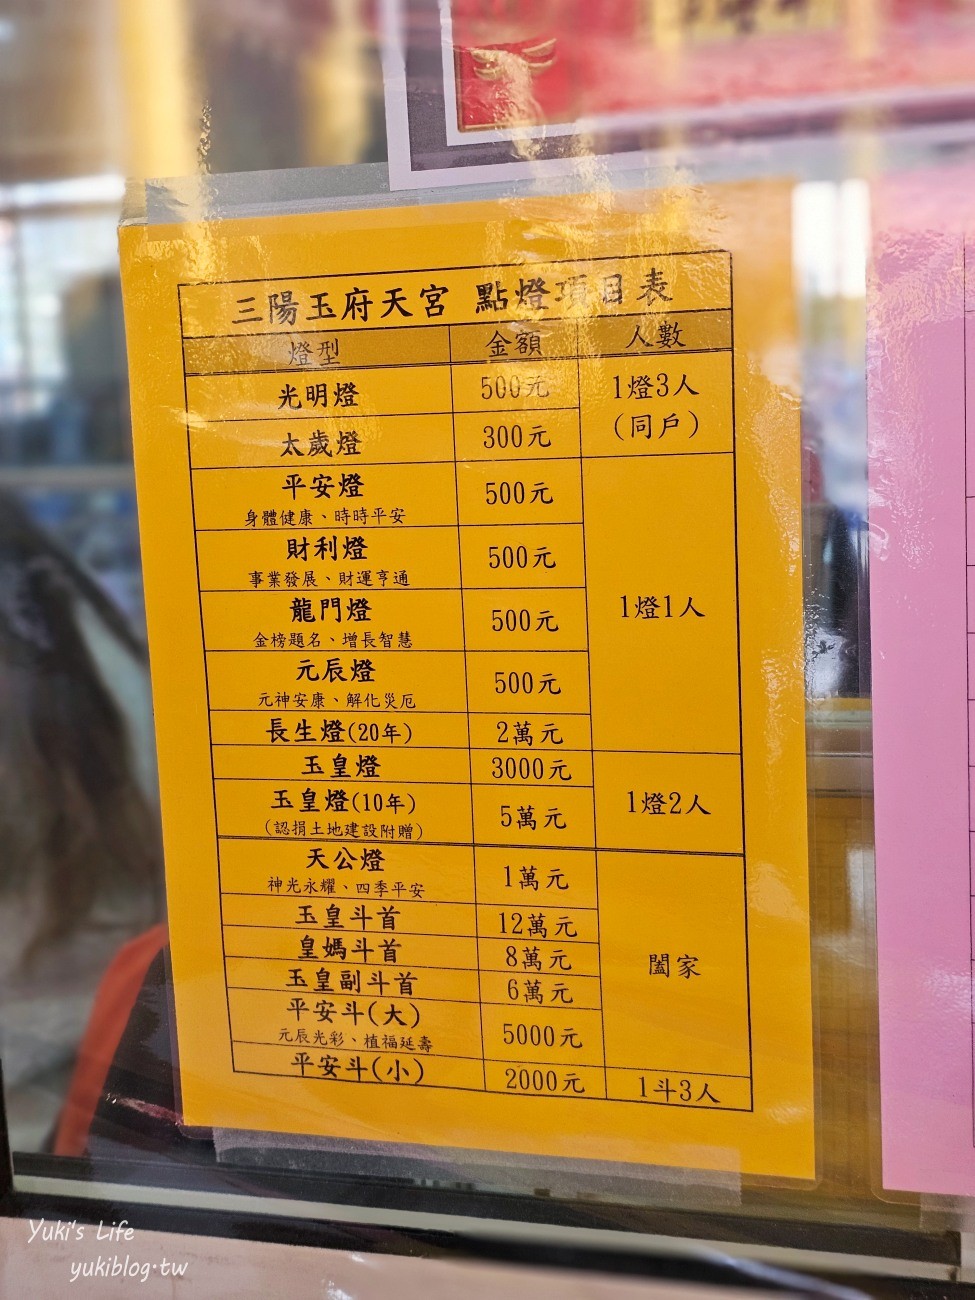 三陽玉府天宮 點燈項目表
燈型 金額 人數
光明燈 500元 1燈3人
(同戶)
太歲燈 300元
平安燈 500元
身體健康、時時平安
財利燈 500元
事業發展、財運亨通
1燈1人
龍門燈 500元
金榜題名、增長智慧
元辰燈 500元
元神安康、解化災厄
長生燈(20年) 2萬元
玉皇燈 3000元
玉皇燈(10年) 5萬元 1燈2人
(認捐土地建設附贈)
天公燈 1萬元
神光永耀、四季平安
玉皇斗首 12萬元
皇媽斗首 8萬元 闔家
玉皇副斗首 6萬元
平安斗(大) 5000元
元辰光彩、植福延壽
平安斗(小) 2000元 1斗3人
Yuki's Life
yukiblog.tw